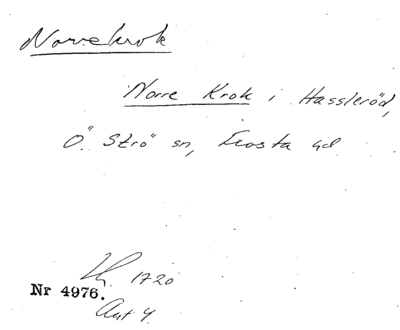 Norrekrok
Norre Krok i Hassleröd,
Ö. Strö sn, Frosta hd
1720
Nr 4976.
Ant 4.